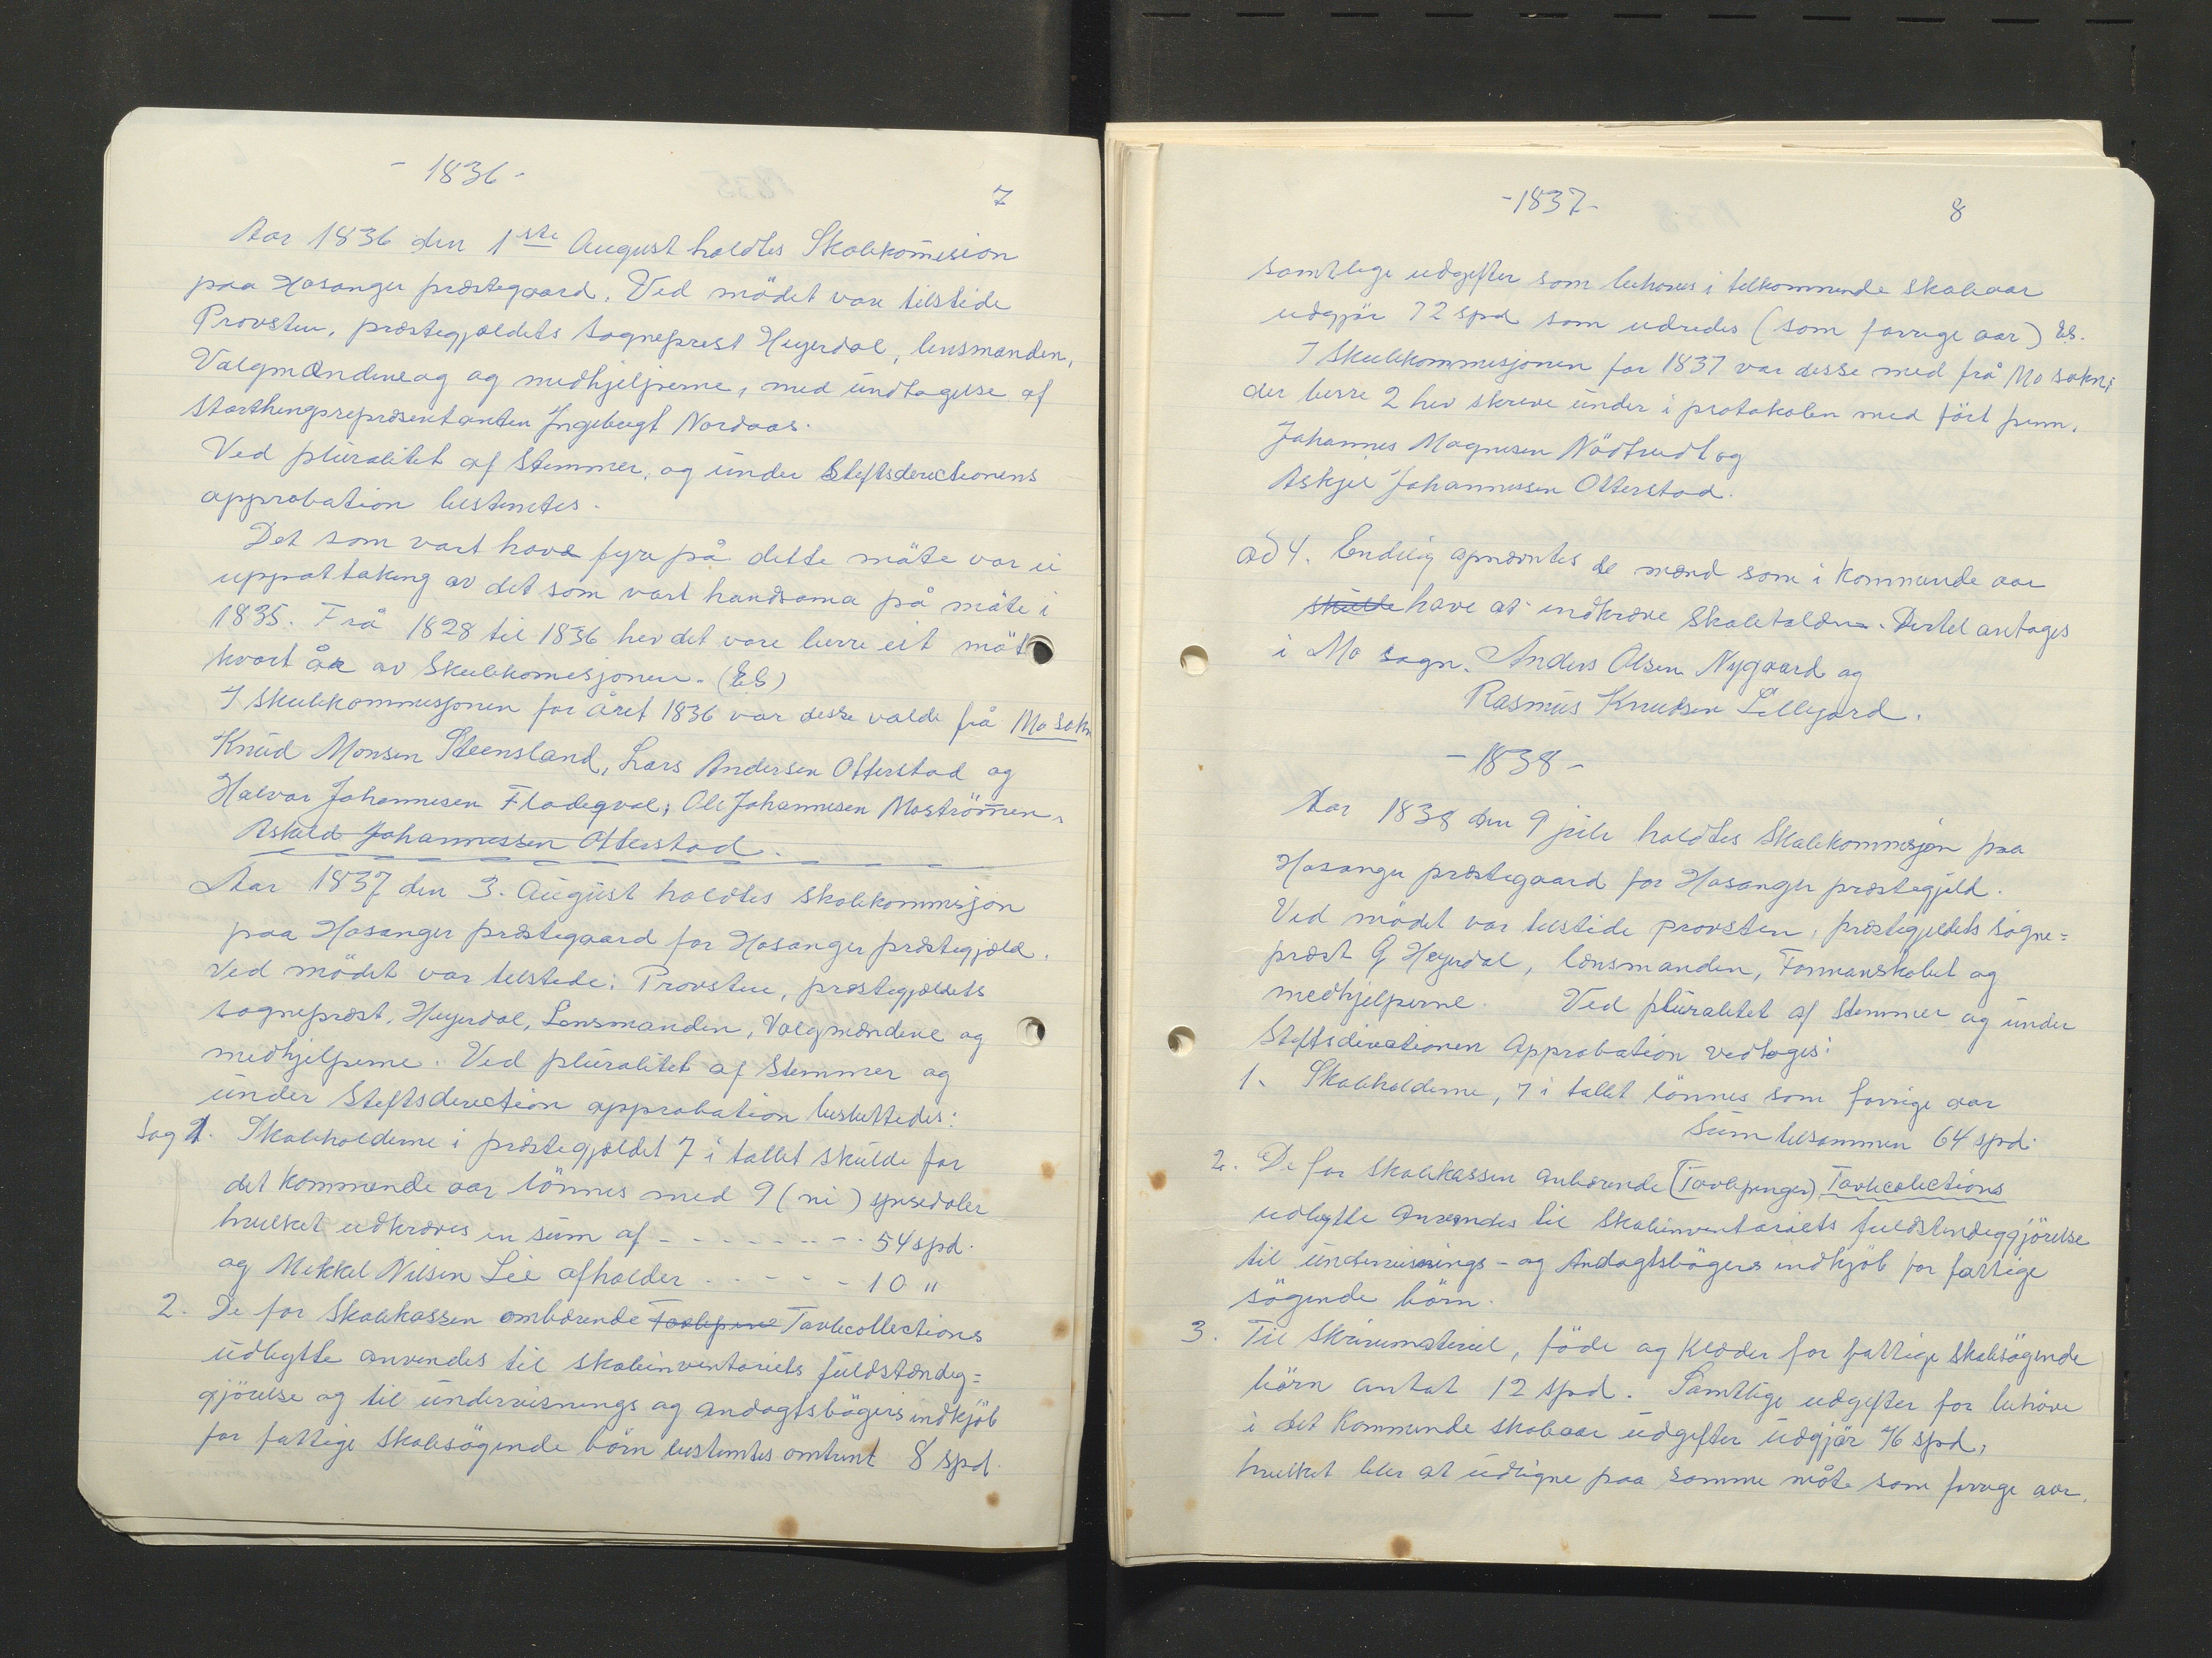 - 1836 -
7
Aar 1836 den 1ste August holdtes Skolekomision
paa Hosanger præstegaard. Ved mödet vare tilstede
Provsten, præstegjældets sogneprest Heyerdal, lensmanden,
Valgmændene og og medhjelperne, med undtagelse af
Storthingsrepræsentanten Ingebregt Nordaas.
Ved pluralitet af Stemmer, og under Stiftsdirectionens
approbation bestemtes.
Det som vart havd fyre på dette möte var ei
uppattaking av det som vart handsama på möte i
1835. Frå 1828 til 1836 hev det vore berre eit möt
kvart år av Skulekomisjonen. (EB)
I skulekommisjonen for året 1836 var desse valde frå Mo sokn
Knud Monsen Steensland, Lars Andersen Otterstad og
Halvor Johannesen Fladegval, Ole Johannesen Moströmen,
Askild Johannessen Otterstad.
Aar 1837 den 3. August holdtes skolekommisjon
paa Hosanger præstegaard for Hosanger præstegjæld.
Ved mödet var tilstede: Provsten, præstegjældets
sognepræst, Heyerdal, Lensmanden, Valgmændene og
medhjelperne. Ved pluralitet af Stemmer og
under Stiftsdirection approbation besluttedes:
Sag 1. Skoleholderne i præstegjældet 7 i tallet skulde for
det kommende aar lönnes med 9 (ni) spesidaler
hvilket udkræves en sum af - - - - - - - - 54 spd.
og Mikkel Nilsen Lie afholder - - - - - 10 "
2. De for Skolekassen ombærende Tavlepene Tavlecollections
udbytte anvendes til skoleinventariets fuldstændig=
gjörelse og til undervisnings og andagtsbögers indkjöb
for fattige skolesögende börn bestemtes omtrent 8 spd.
- 1837 -
8
samtlige udgifter som behöves i tilkommende skoleaar
udgjör 72 spd som udredes (som forrige aar) EB.
I Skulekommisjonen for 1837 var desse med frå Mo sokn;
der berre 2 hev skreve under i protokolen med fört penn.
Johannes Magnesen Nödtvedt og
Askjel Johannessen Otterstad.
ad 4. Endelig opnævntes de mænd som i kommende aar
skulde have at indkræve skoletolden. Dertil antages
i Mo sogn. Anders Olsen Nygaard og
Rasmus Knudsen Lillejord.
- 1838 -
Aar 1838 den 9 juli holdtes Skolekommisjon paa
Hosanger præstegaard for Hosanger præstegjeld.
Ved mödet var tilstede provsten, præstegjeldets sogne=
præst G Heyerdal, lænsmanden, Formanskabet og
medhjelperne. Ved pluralitet af Stemmer og under
Stiftsdirectionen Approbation vedtoges:
1. Skoleholderne, 7 i tallet lönnes som forrige aar
Sum tilsammen 64 spd.
2. De for skolekassen anbærende (Tavlepenger) Tavlecolections
udbytte anvendes til skoleinventariets fuldstendiggjörelse
til undervisnings- og Andagtsbögers indkjöb for fattige
sögende börn.
3. Til skrivemateriel, föde og klæder for fattige skolesögende
börn antat 12 spd. Samtlige udgifter for behöve
i det kommende skoleaar udgifter udgjör 76 spd,
hvilket blir at udligne paa samme måte som forrige aar.